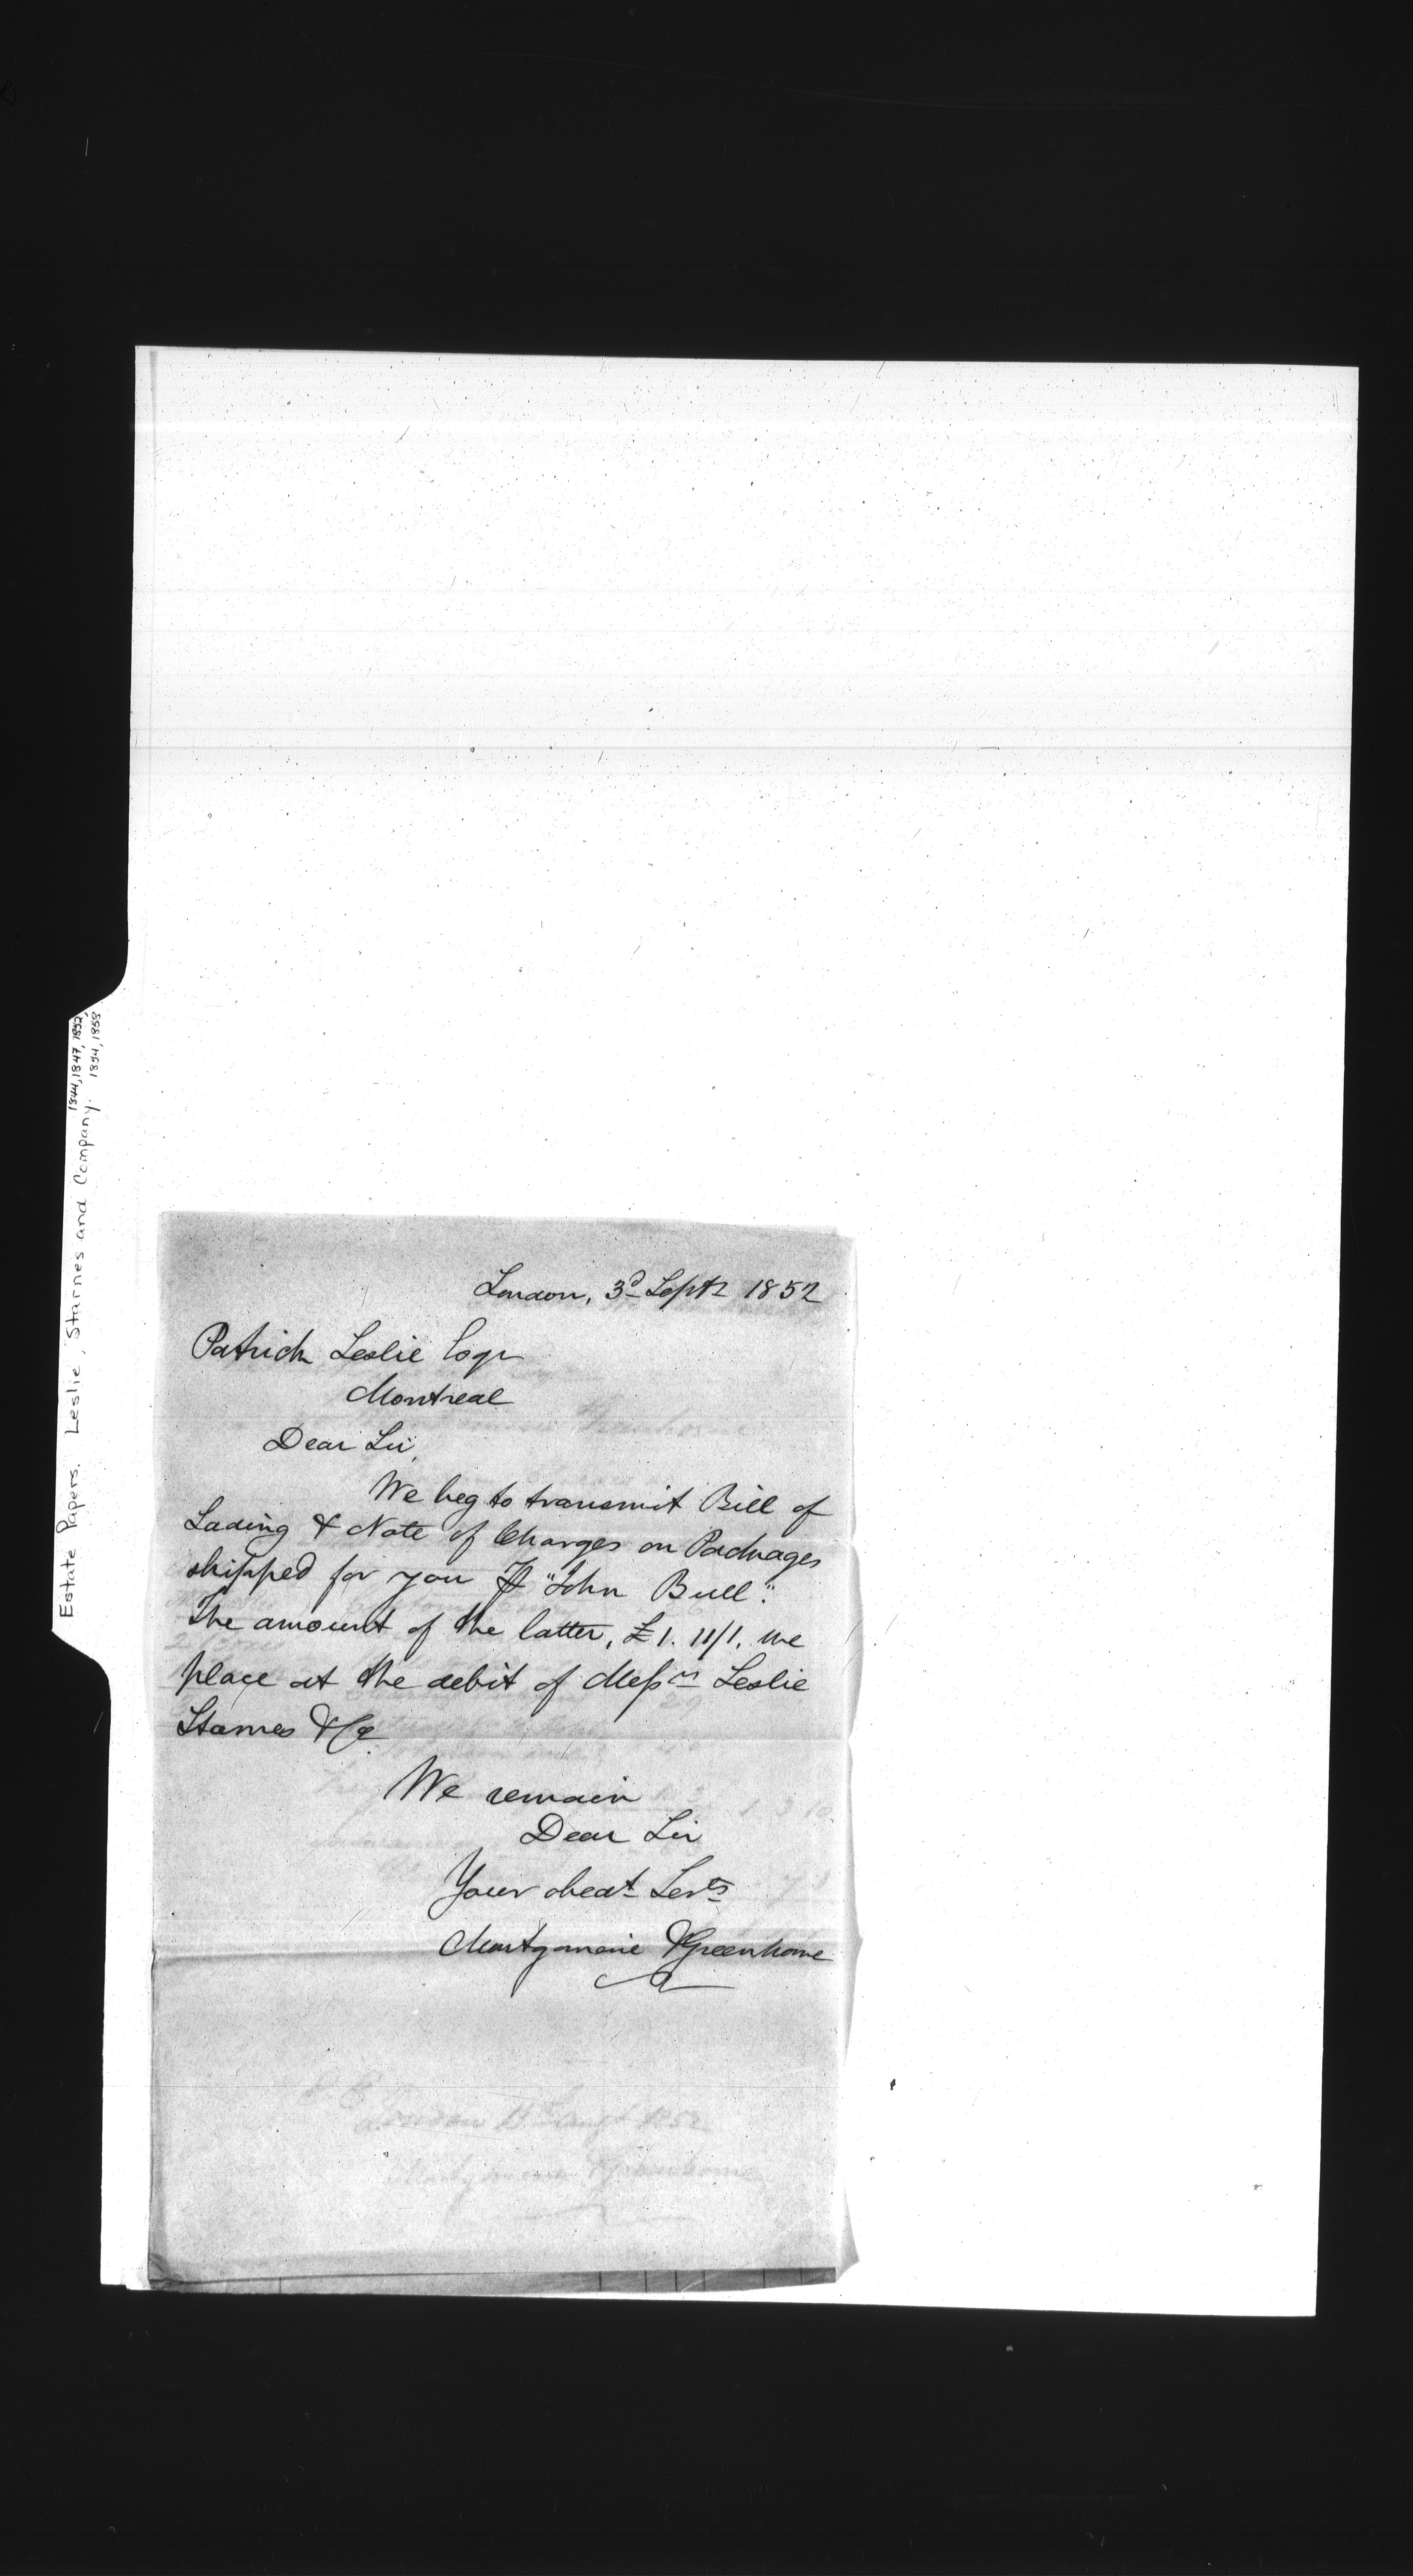 Estate Papers. Leslie, Starnes and Company. 1844, 1847, 1852,
1854, 1858
London, 3d Septr 1852
Patrick Leslie Esqr
Montreal
Dear Sir,
We beg to transmit Bill of
Lading & Note of Charges on Packages
shipped for you ⅌ "John Bull".
The amount of the latter, £1. 11/1, we
place at the debit of Messrs Leslie
Starnes & Co
We remain
Dear Sir
Your obedt Servts
Montgomerie & Greenhorne